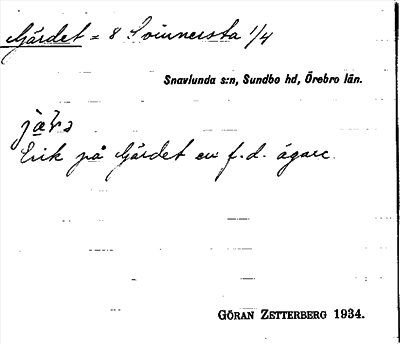 Gärdet = 8 Svinnersta 1/4
Snavlunda s:n, Sundbo hd, Örebro län.
Erik på Gärdet en f.d. ägare.
GÖRAN ZETTERBERG 1934.